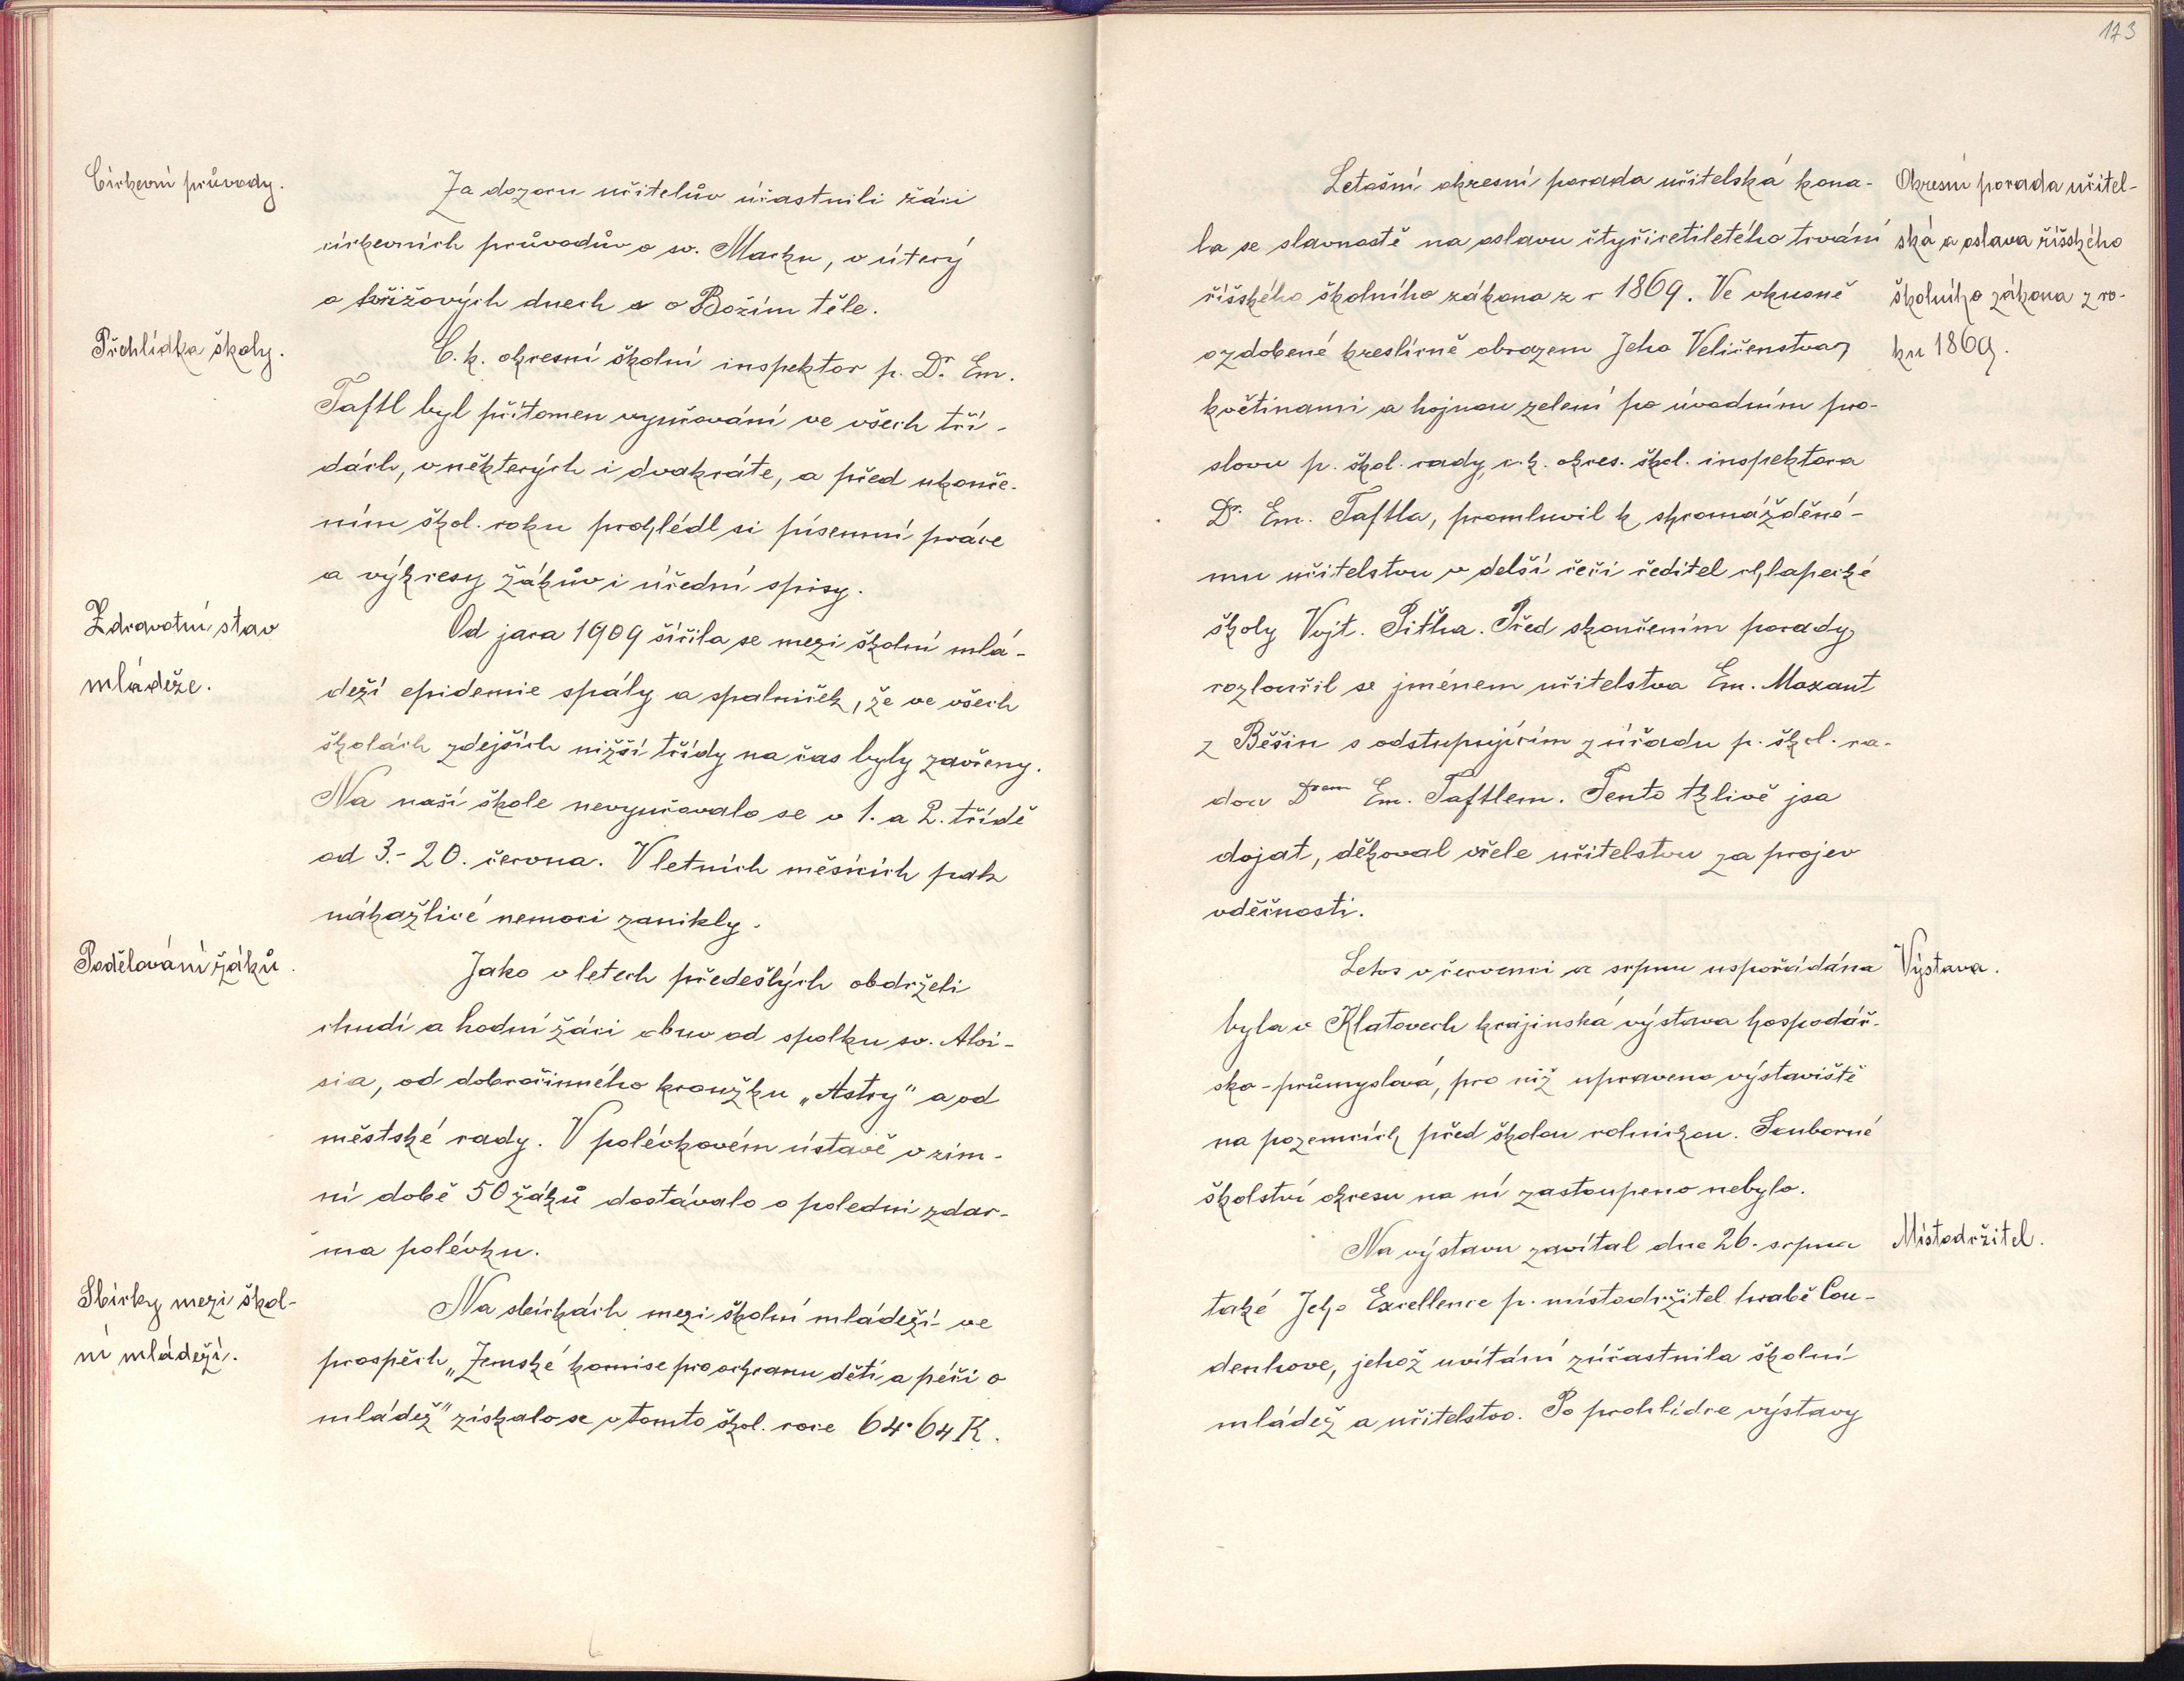 Církevní průvody.
Za dozoru učitelův účastnili žáci
církevních průvodův o sv. Marku, v úterý
o křížových dnech a o Božím těle.
Přehlídka školy.
C. k. okresní školní inspektor p. Dr. Em.
Taftl byl přítomen vyučování ve všech tří-
dách, v některých i dvakráte, a před ukonče-
ním škol. roku prohlédl si písemní práce
a výkresy žákův i úřední spisy.
Zdravotní stav
mládeže.
Od jara 1909 šířila se mezi školní mlá-
deží epidemie spály a spalniček, že ve všech
školách zdejších nižší třídy na čas byly zavřeny.
Na naší škole nevyučovalo se v 1. a 2. třídě
od 3.-20. června. V letních měsících pak
nákažlivé nemoci zanikly.
Podělování žáků.
Jako v letech předešlých obdrželi
chudí a hodní žáci obuv od spolku sv. Aloi-
sia, od dobročinného kroužku „Astry" a od
městské rady. V polévkovém ústavě v zim-
ní době 50 žáků dostávalo o poledni zdar-
ma polévku.
Sbírky mezi škol-
ní mládeží.
Na sbírkách mezi školní mládeží ve
prospěch „Zemské komise pro ochranu dětí a péči o
mládež" získalo se v tomto škol. roce 64·64 K.
173
Letošní okresní porada učitelská kona-
la se slavnostě na oslavu čtyřicetiletého trvání
říšského školního zákona z r 1869. Ve vkusně
ozdobené kreslírně obrazem Jeho Veličenstva,
květinami a hojnou zelení po úvodním pro-
slovu p. škol. rady, c. k. okres. škol. inspektora
Dr. Em. Taftla, promluvil k shromážděné-
mu učitelstvu v delší řeči ředitel chlapecké
školy Vojt. Pitha. Před skončením porady
rozloučil se jménem učitelstva Em. Maxant
z Běšin s odstupujícím z úřadu p. škol. ra-
dou Drem Em. Taftlem. Tento tklivě jsa
dojat, děkoval vřele učitelstvu za projev
vděčnosti.
Okresní porada učitel-
ská a oslava říšského
školního zákona z ro-
ku 1869.
Letos v červenci a srpnu uspořádána
byla v Klatovech krajinská výstava hospodář-
sko-průmyslová, pro niž upraveno výstaviště
na pozemcích před školou rolnickou. Souborné
školství okresu na ní zastoupeno nebylo.
Výstava.
Na výstavu zavítal dne 26. srpna
také Jeho Excellence p. místodržitel hrabě Cou-
denhove, jehož uvítání zúčastnila školní
mládež a učitelstvo. Po prohlídce výstavy
Místodržitel.